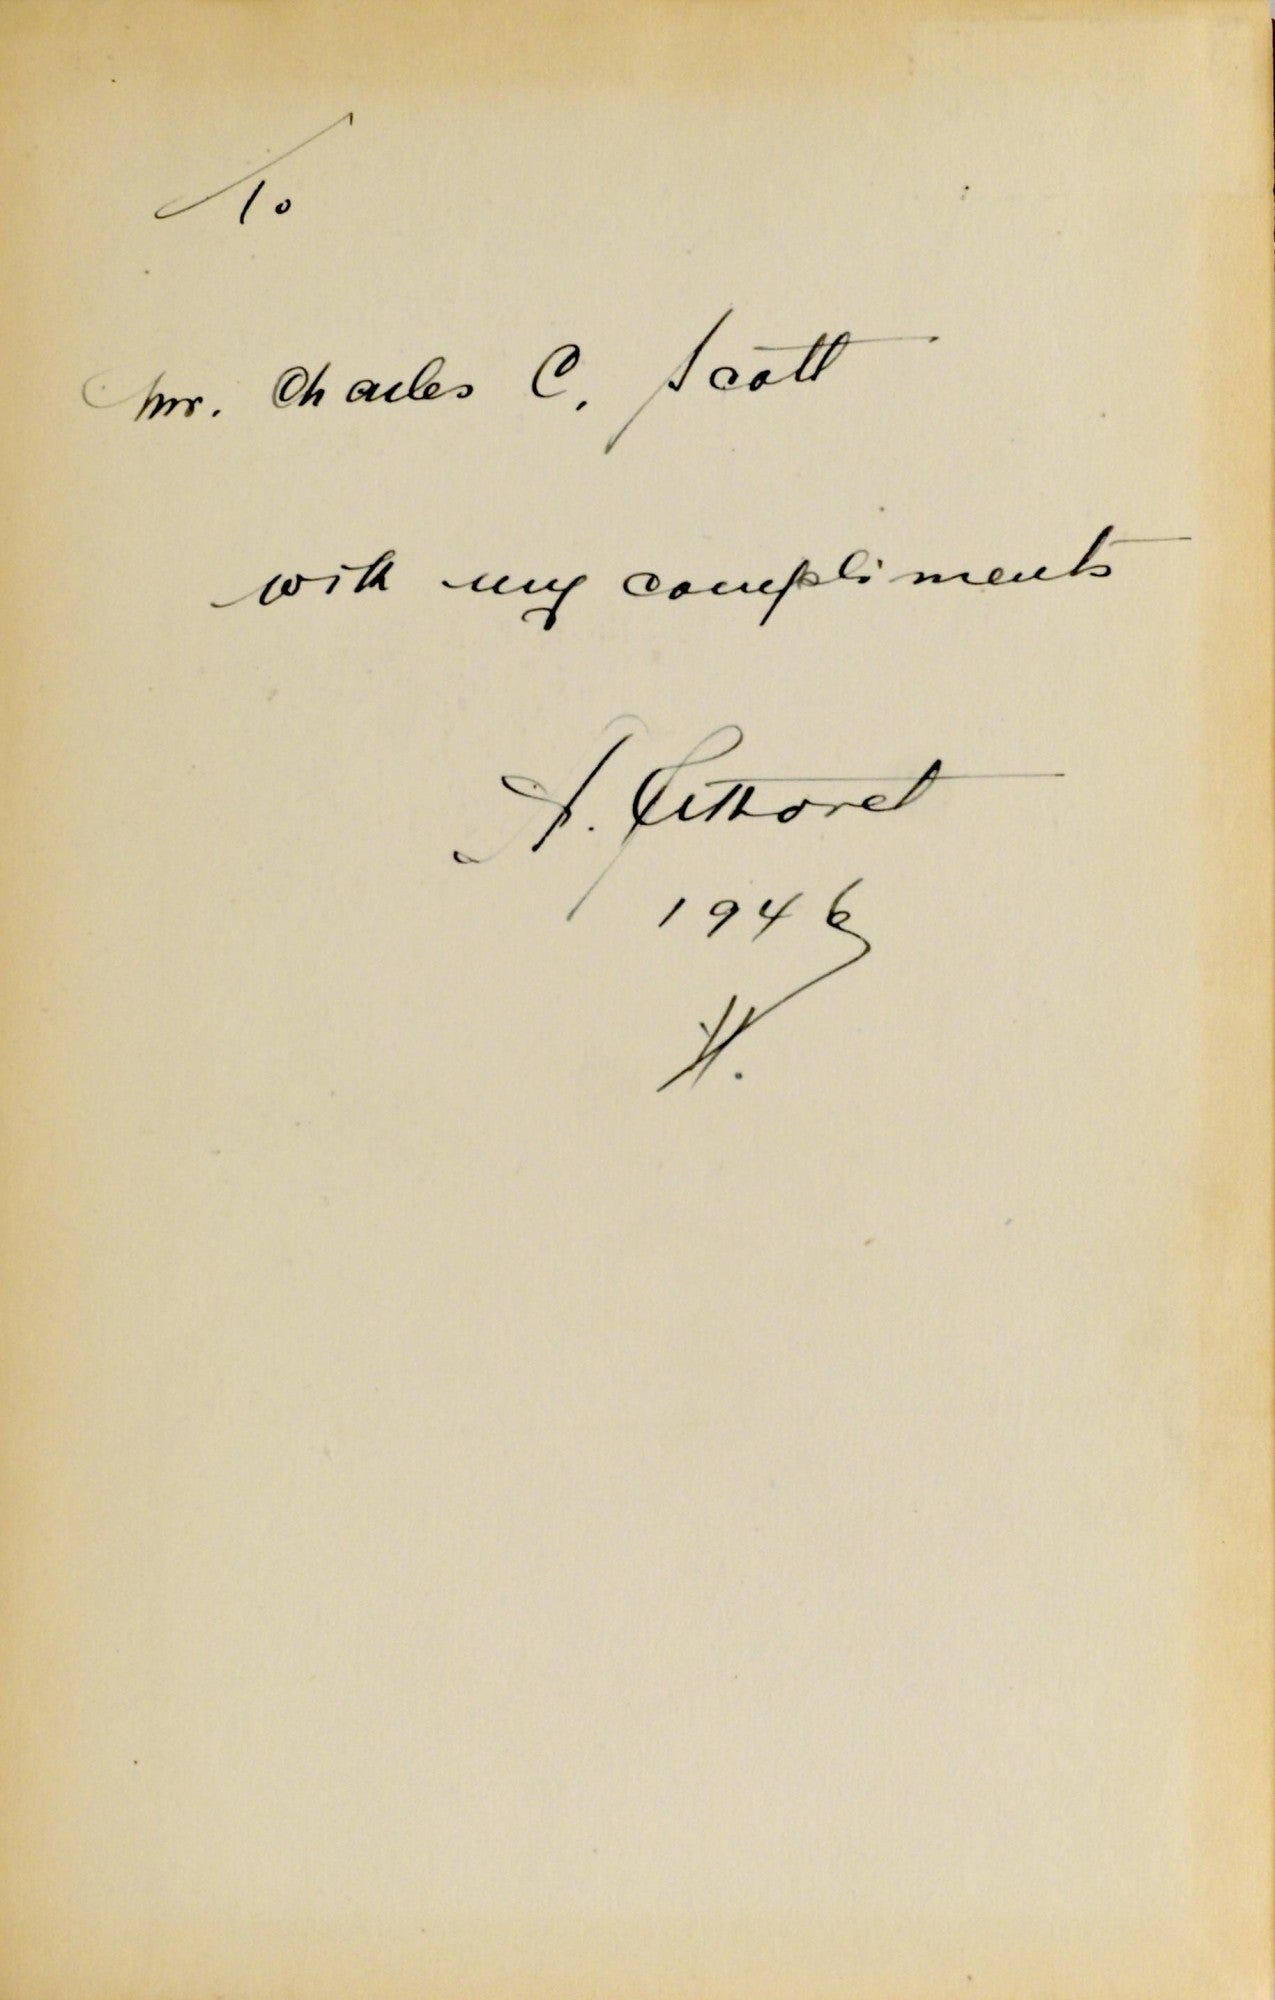 To
Mr. Charles C. Scott
with my compliments
A.
1946
H.